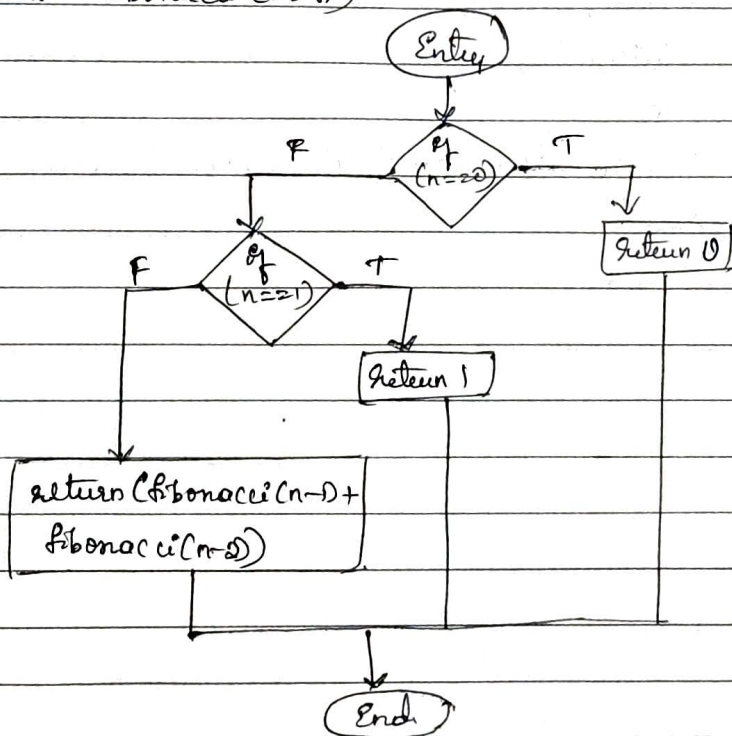 Entry
F
T
if
(n==0)
return 0
F
if
(n==1)
T
return 1
return (fibonacci(n-1)+
fibonacci(n-2))
End